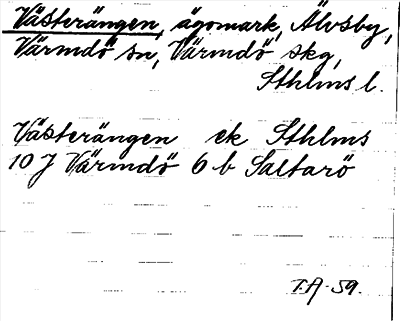 Västerängen, ägomark, Älvsby,
Värmdö sn, Värmdö skg,
Sthlms l.
Västerängen ek Sthlms
10 J Värmdö 6 b Saltarö
T.A. 59.